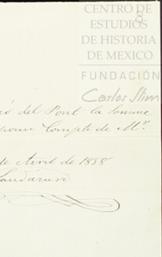 CENTRO DE
ESTUDIOS
DE HISTORIA
DE MEXICO
FUNDACIÓN
Carlos Slim
del Pont la somme
pour Compte de Mr.
Avril de 1838